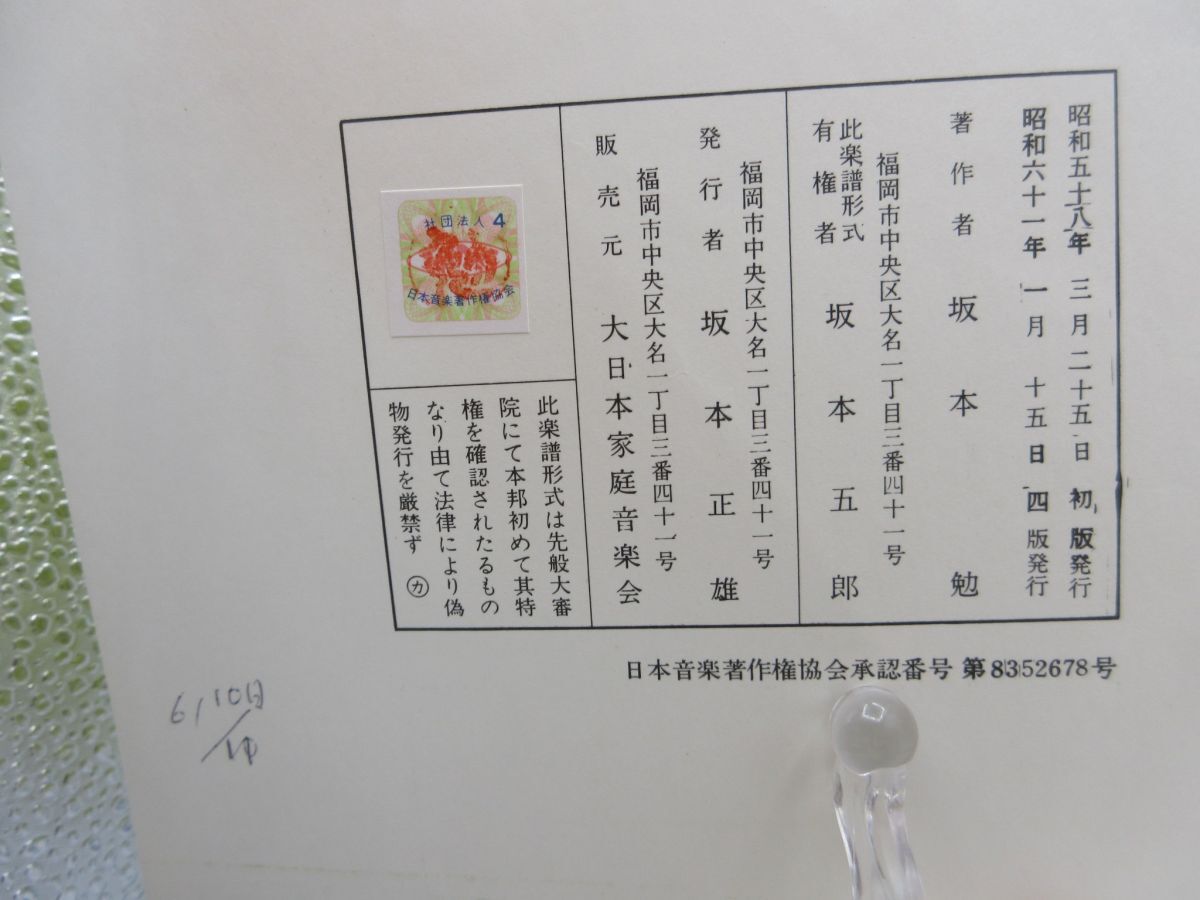 昭和五十八年 三月二十五日 初版発行
昭和六十一年 一月 十五日 四版発行
著作者 坂本 勉
福岡市中央区大名一丁目三番四十一号
此楽譜形式
有権者 坂本五郎
福岡市中央区大名一丁目三番四十一号
発行者 坂本正雄
福岡市中央区大名一丁目三番四十一号
販売元 大日本家庭音楽会
社団法人 4
日本音楽著作権協会
此楽譜形式は先般大審
院にて本邦初めて其特
権を確認されたるもの
なり由て法律により偽
物発行を厳禁ず ㋕
日本音楽著作権協会承認番号 第8352678号